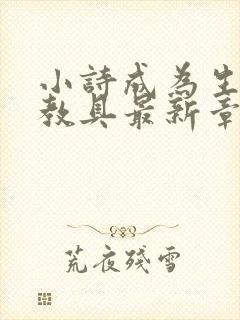 小詩成為生
教具最新章
荒夜殘雪